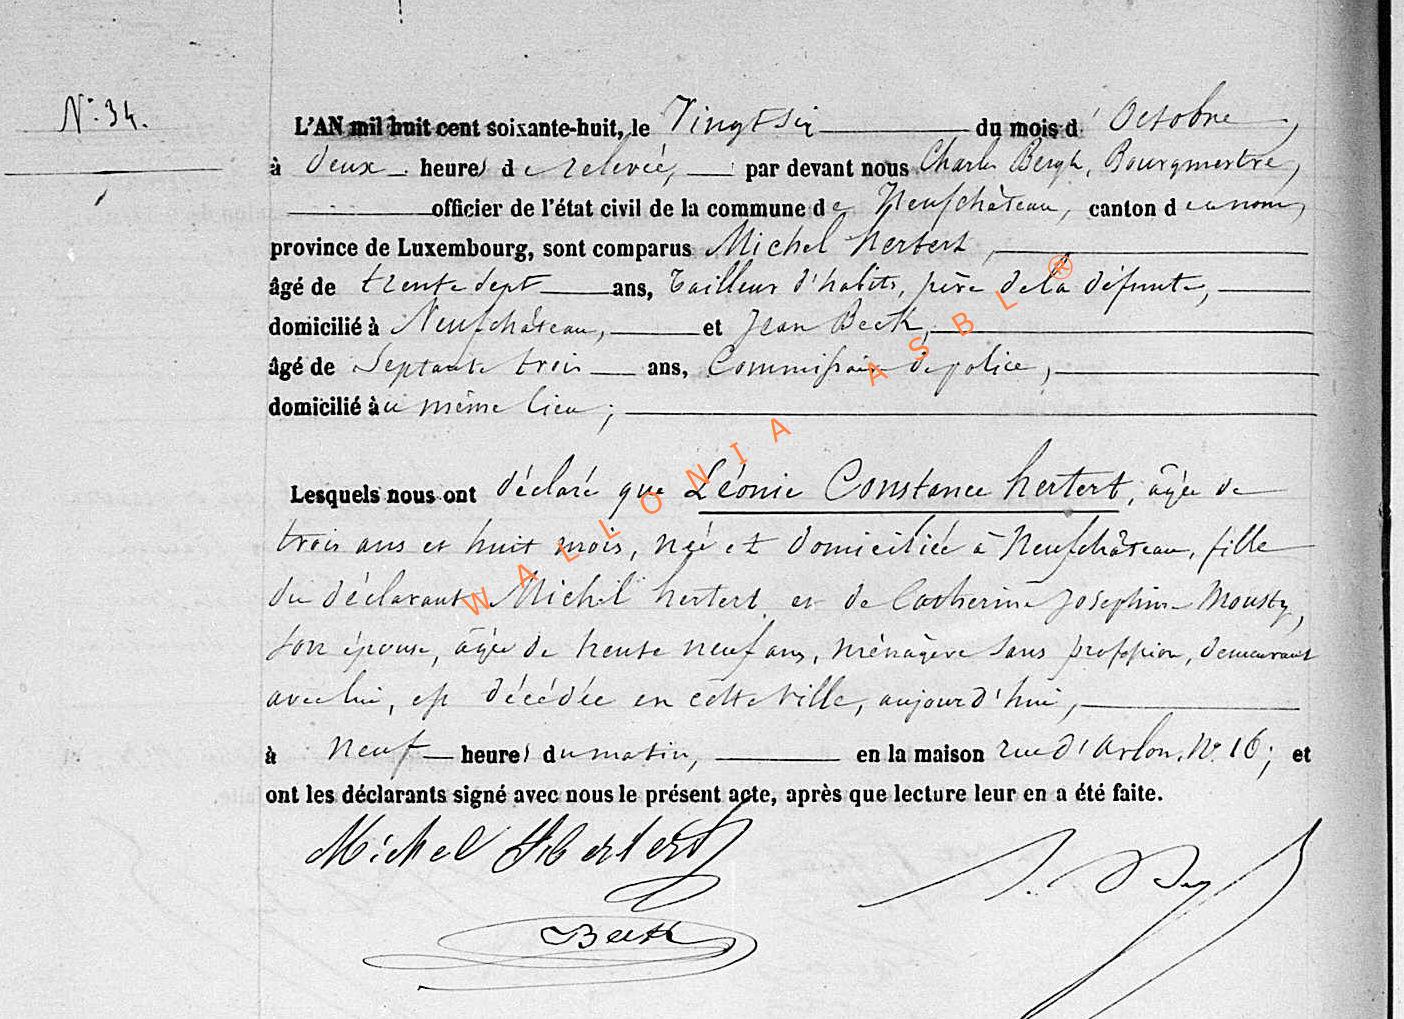 N° 34.
L'AN mil huit cent soixante-huit, le Vingt six du mois d'Octobre,
à deux heures de relevée, par devant nous Charles Bergh, Bourgmestre,
officier de l'état civil de la commune de Neufchâteau, canton du nom,
province de Luxembourg, sont comparus Michel hertert,
âgé de trente sept ans, tailleur d'habits, père de la défunte,
domicilié à Neufchâteau, et Jean Beck,
âgé de Septante trois ans, Commissaire de police,
domicilié au même lieu;
Lesquels nous ont déclaré que Léonie Constance hertert, âgée de
trois ans et huit mois, née et domiciliée à Neufchâteau, fille
du déclarant Michel hertert et de Catherine Josephine Mousty,
son épouse, âgée de trente neuf ans, ménagère sans profession, demeurant
avec lui, est décédée en cette ville, aujourd'hui,
à neuf heures du matin, en la maison rue d'Arlon, N° 16; et
ont les déclarants signé avec nous le présent acte, après que lecture leur en a été faite.
Michel Hertert
Beck
WALLONIA ASBL ®